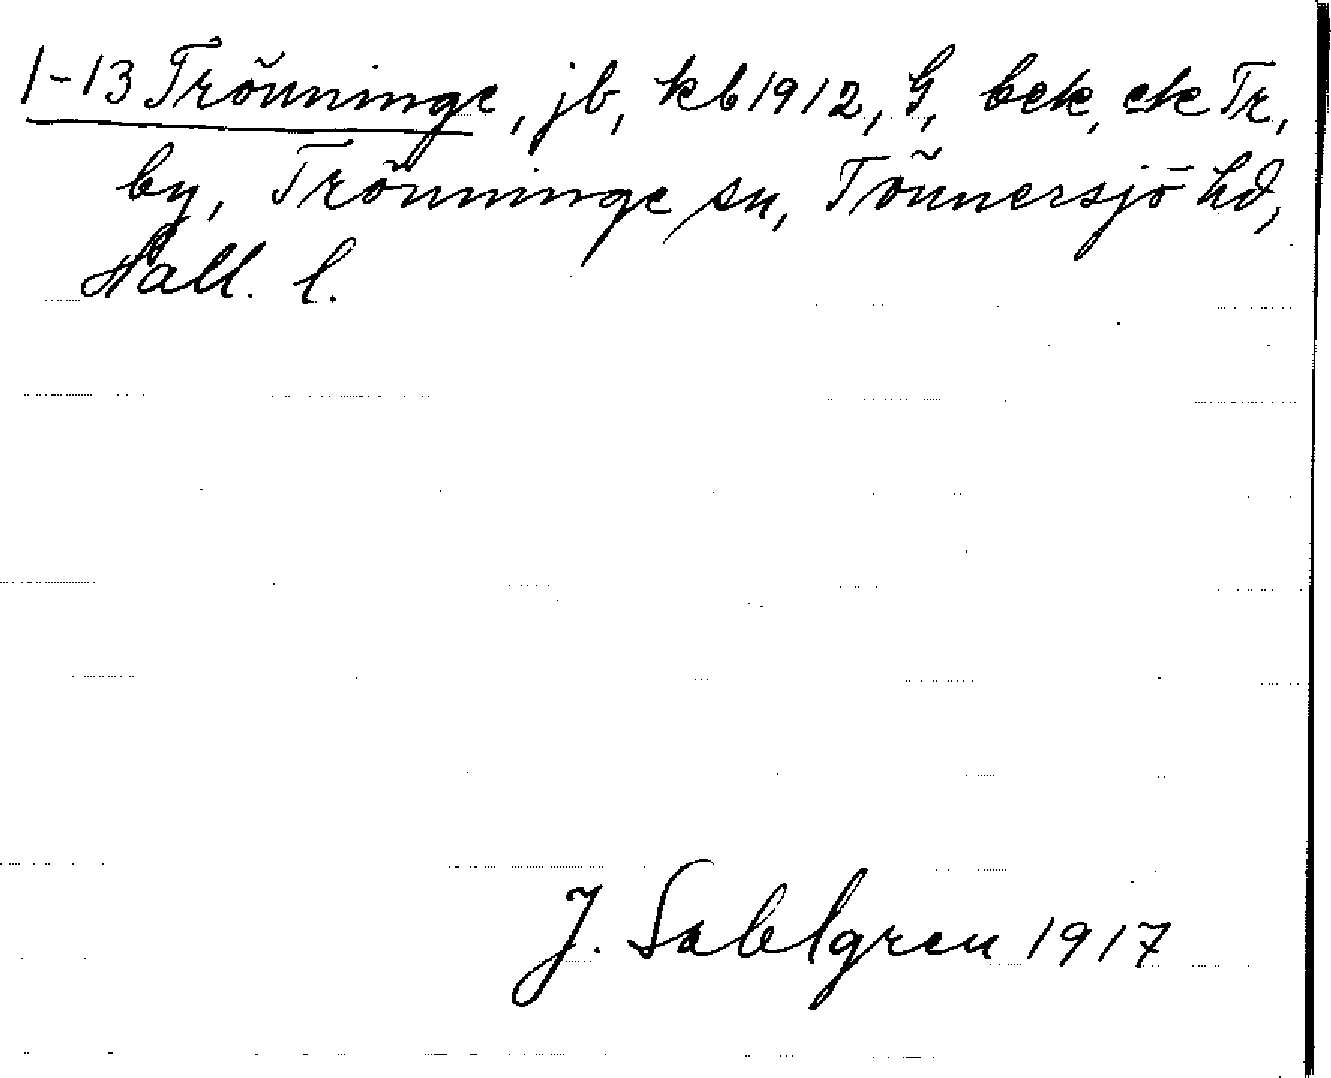 1-13 Trönninge, jb, kb 1912, G, bek, ek Tr,
by, Trönninge sn, Tönnersjö hd,
Hall. l.
J. Sahlgren 1917